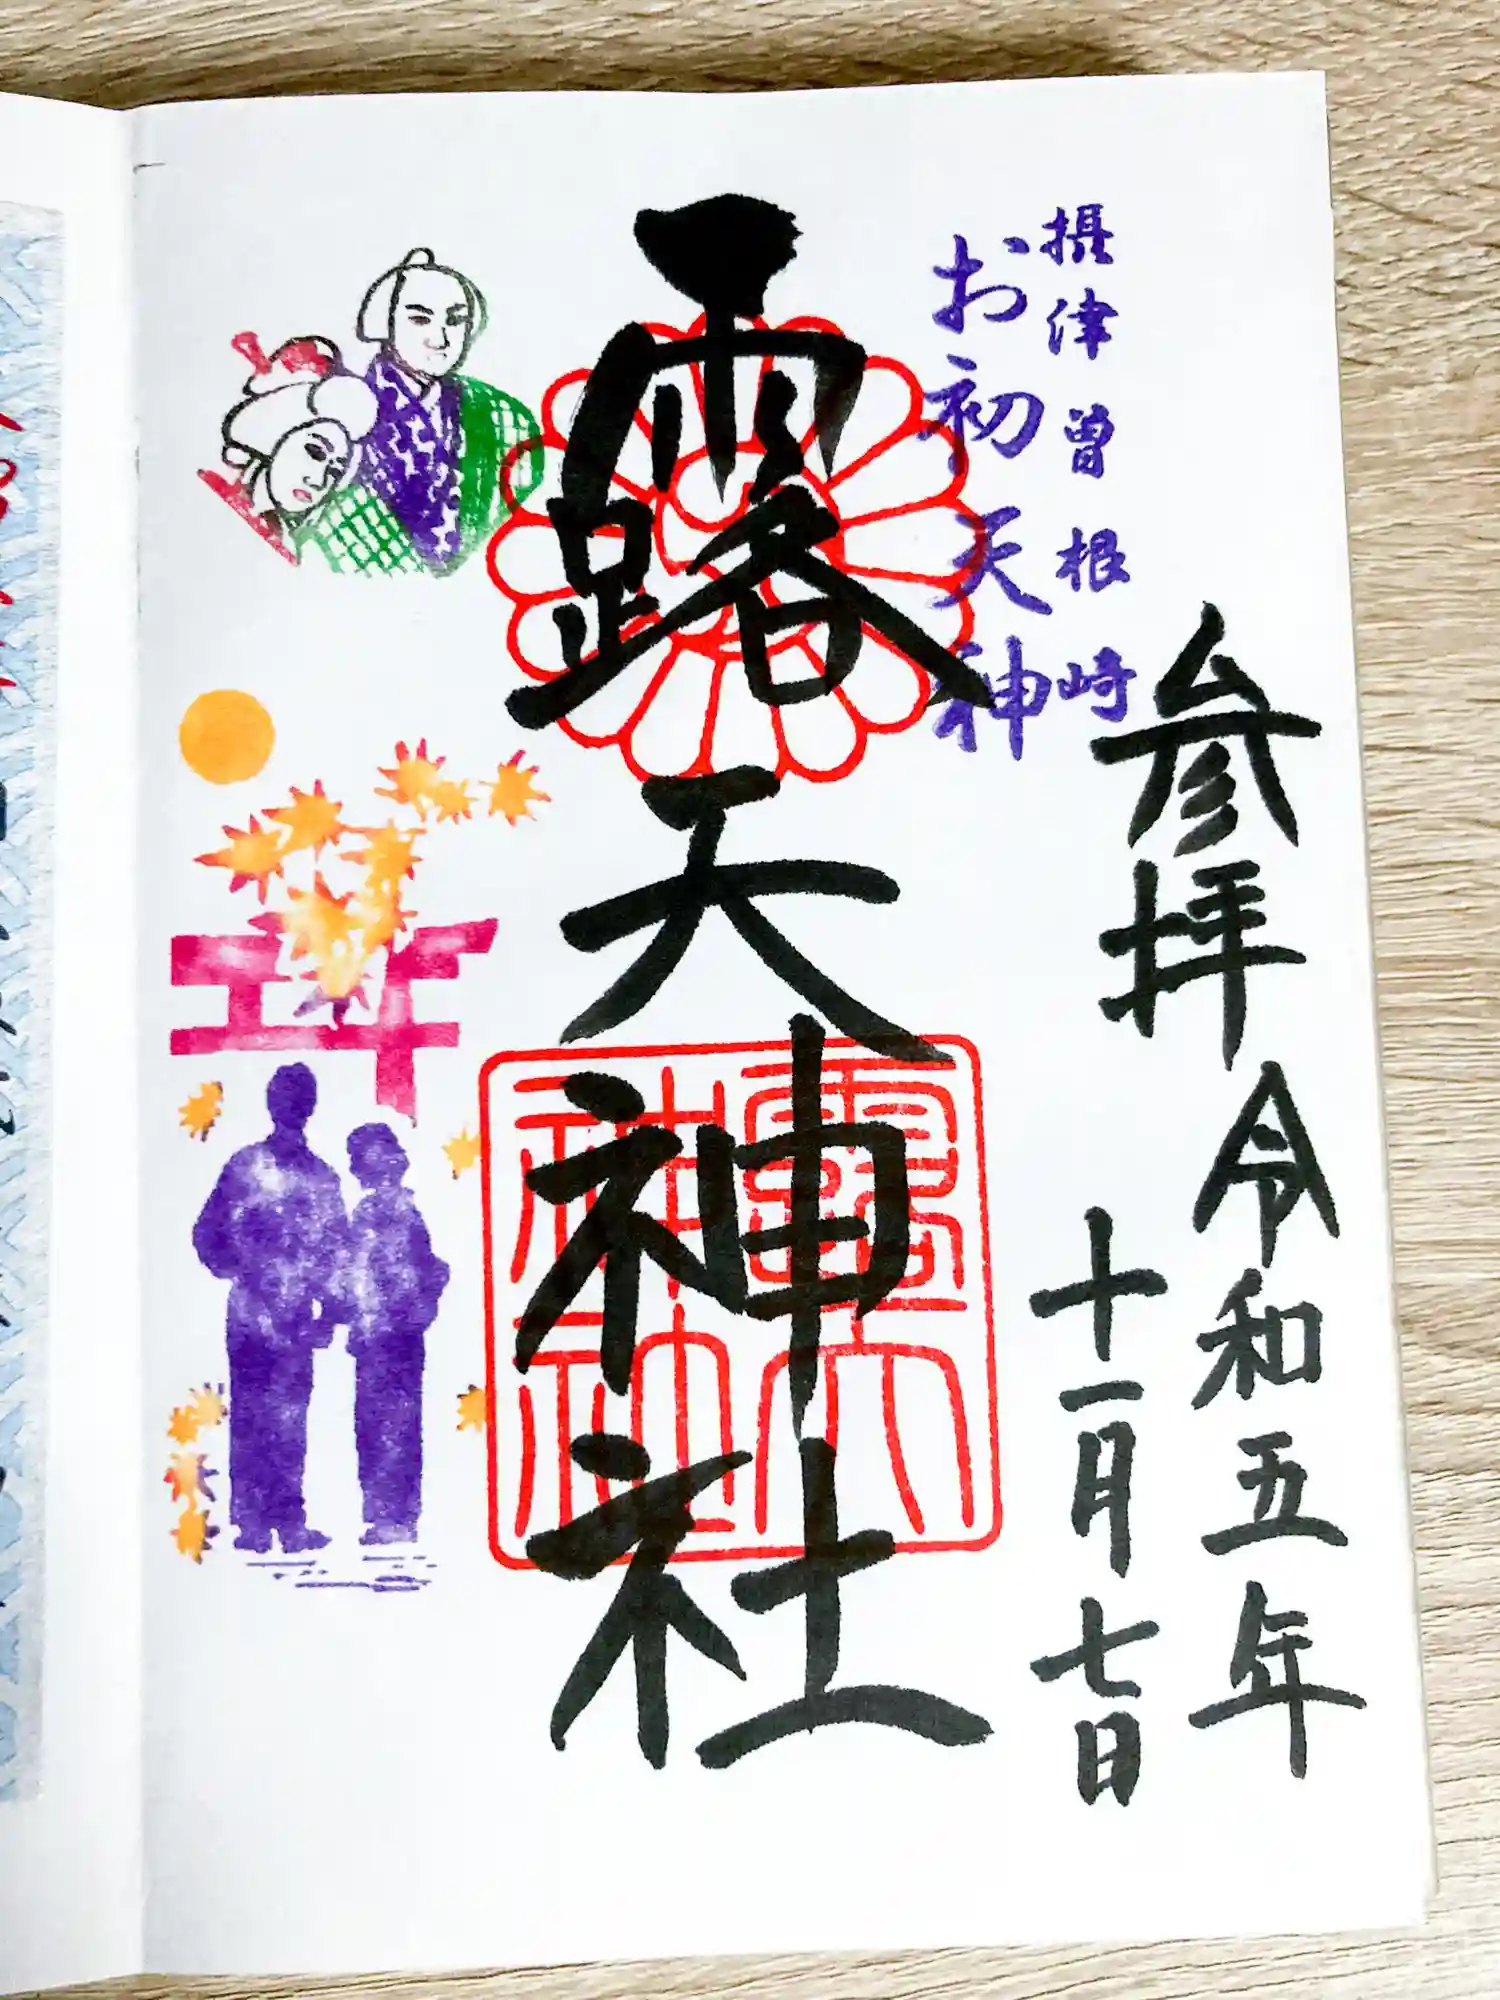 参拝 令和五年
十一月七日
摂津曽根崎
お初天神
露天神社
露天
神社